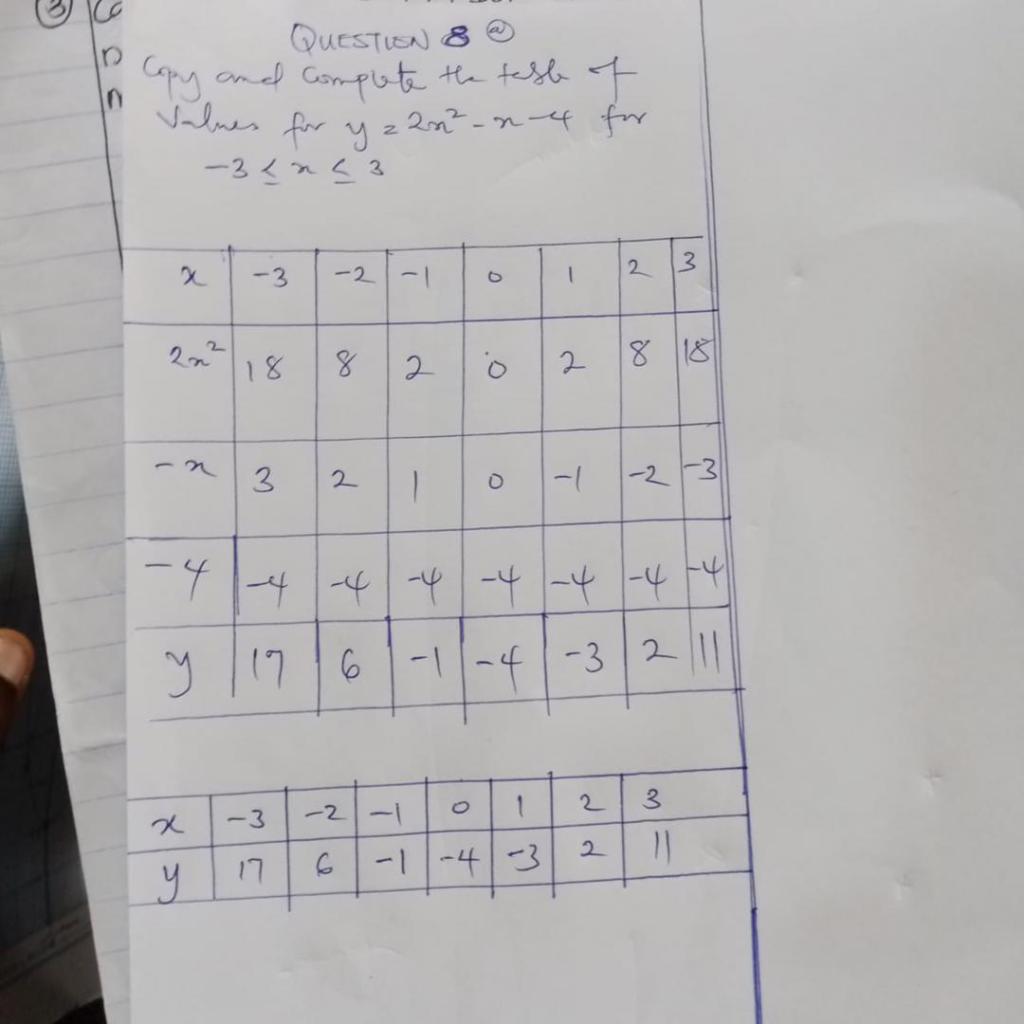 ③ Co
QUESTION 8 ⓐ
D
Copy and Complete the table of
n
Values for y = 2x² - x - 4 for
-3 ≤ x ≤ 3
x -3 -2 -1 0 1 2 3
2x² 18 8 2 0 2 8 18
-x 3 2 1 0 -1 -2 -3
-4 -4 -4 -4 -4 -4 -4 -4
y 17 6 -1 -4 -3 2 11
x -3 -2 -1 0 1 2 3
y 17 6 -1 -4 -3 2 11